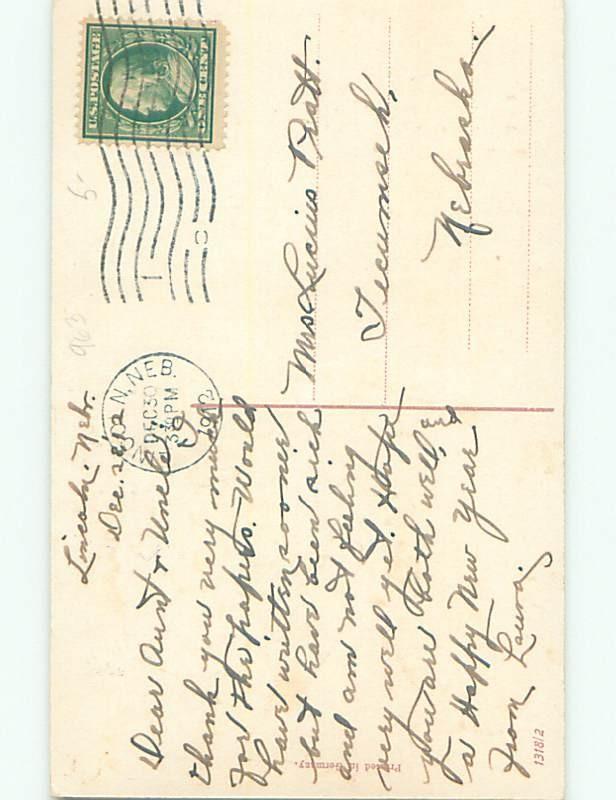 U.S. POSTAGE
ONE CENT
N, NEB.
DEC 30
3 30 PM
1912
Mrs Lucius Pratt.
Tecumseh,
Nebraska.
963
5-
Lincoln. Nebr.
Dec.
Dear Aunt & Uncle,
thank you very much
for the papers. Would
have written sooner
but have been sick
and am not feeling
very well yet. Hope
you are both well, &
a Happy New Year
from Laura.
Printed in Germany.
1318/2